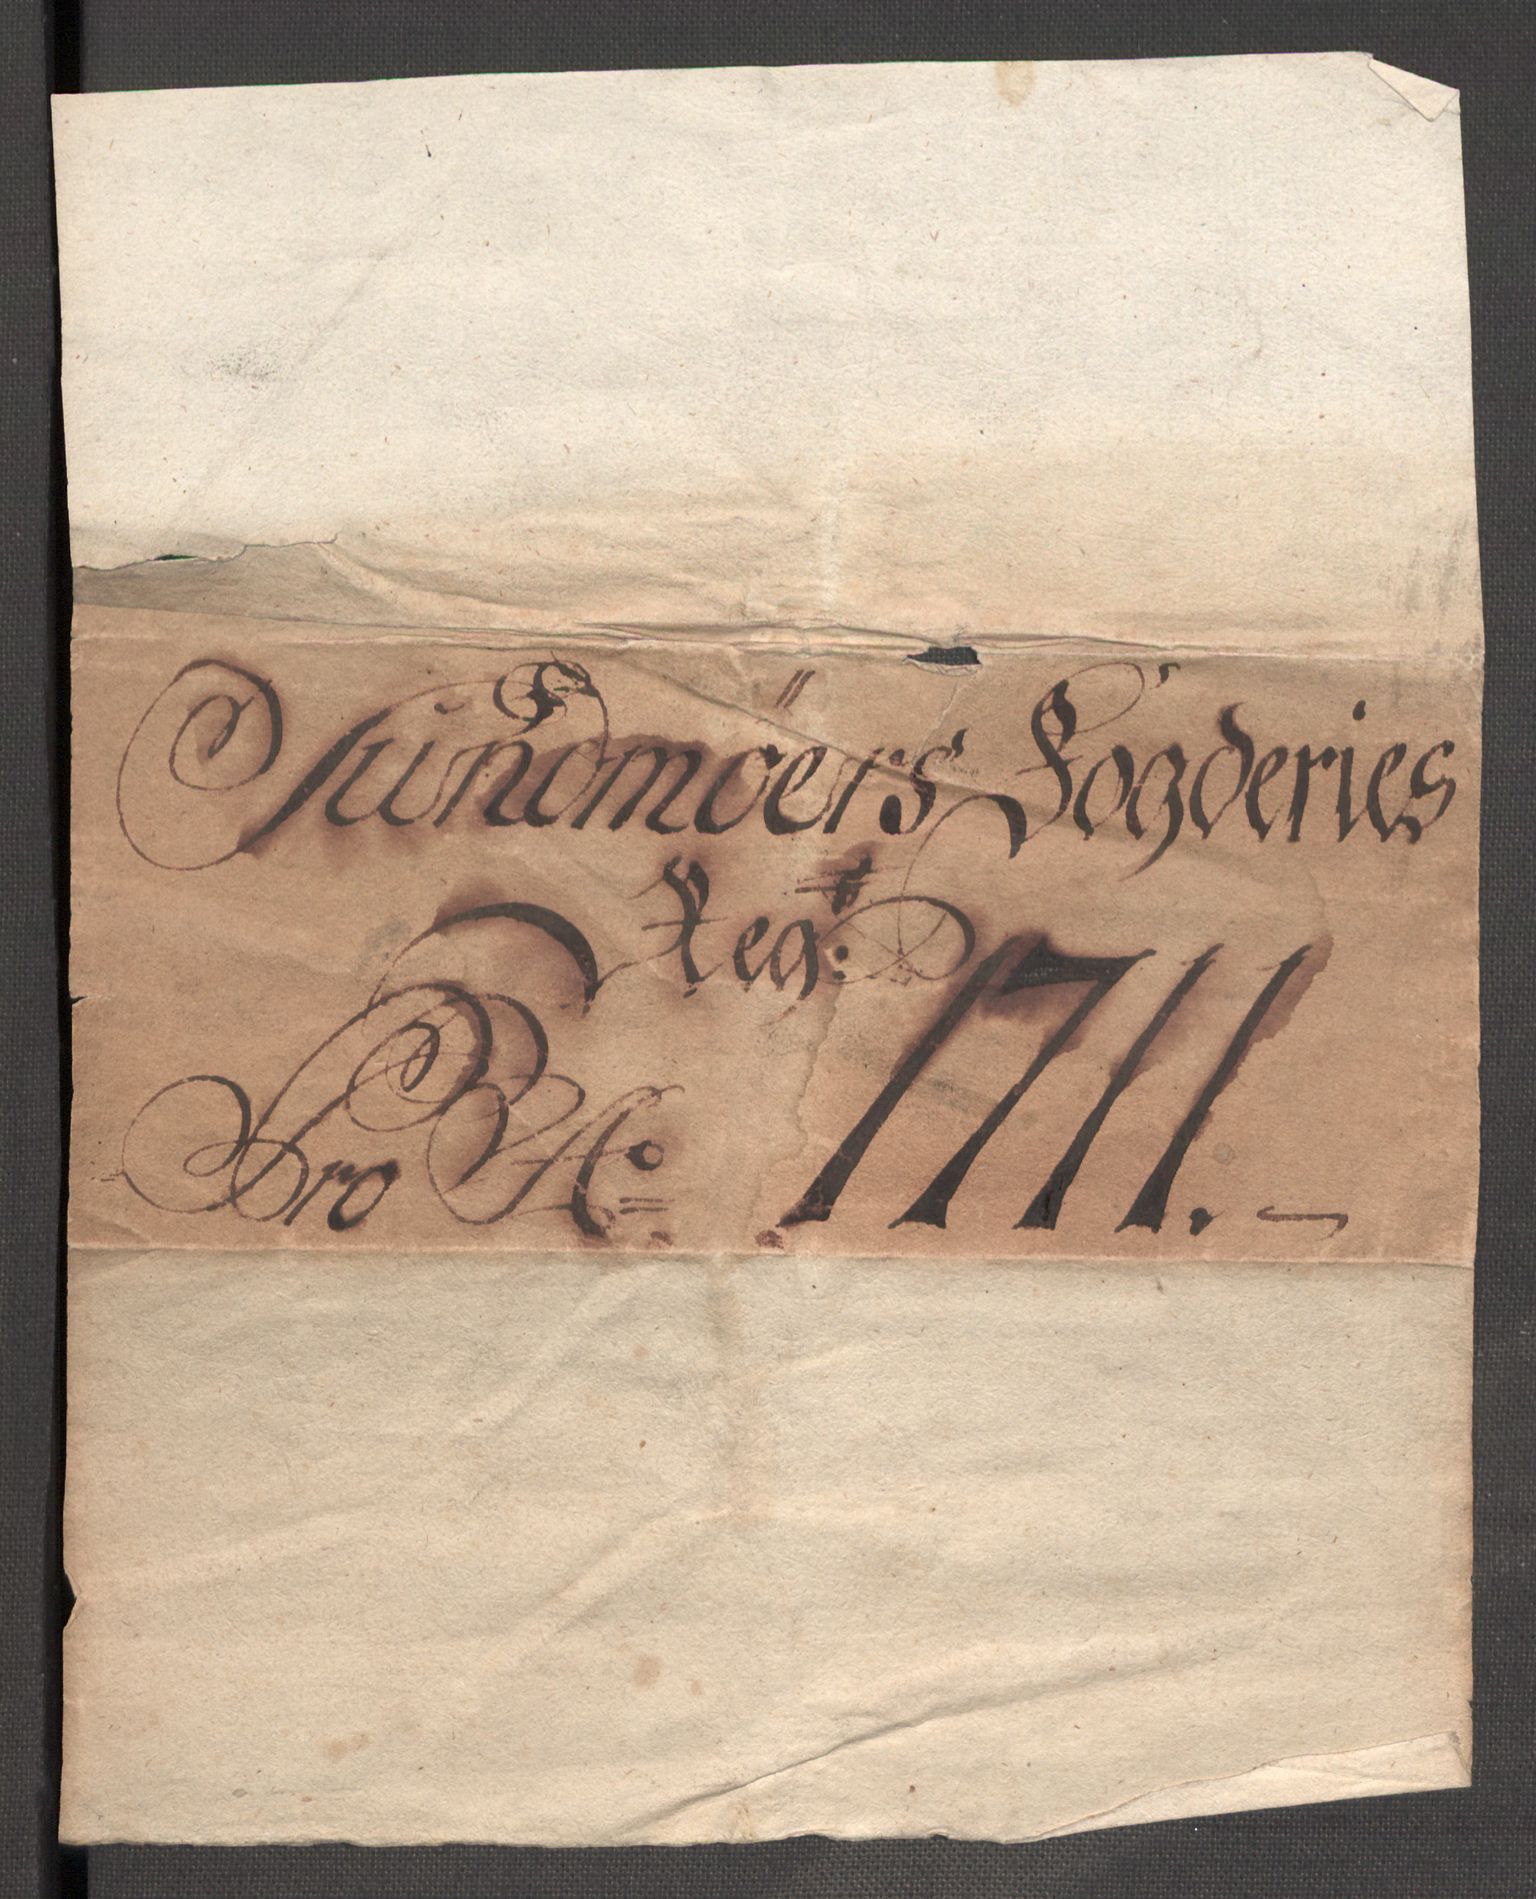 Sundmöers Fogderies
Regskr:
Pro Ao: 1711.